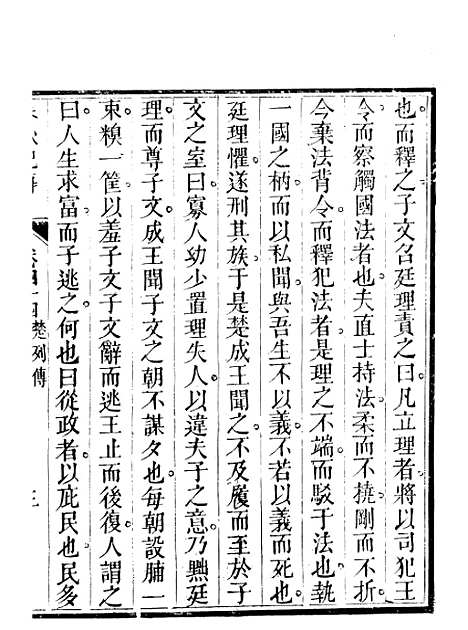 也而釋之子文召廷理責之曰凡立理者將以司犯王
令而察觸國法者也夫直士持法柔而不撓剛而不折
今棄法背令而釋犯法者是理之不端而駁于法也執
一國之柄而以私聞與吾生不以義不若以義而死也
廷理懼遂刑其族于是楚成王聞之不及履而至於子
文之室曰寡人幼少置理失人以違夫子之意乃黜廷
理而尊子文成王聞子文之朝不謀夕也每朝設脯一
束糗一筐以羞子文子文辭而逃王止而後復人謂之
曰人生求富而子逃之何也曰從政者以庇民也民多
楚列傳
三